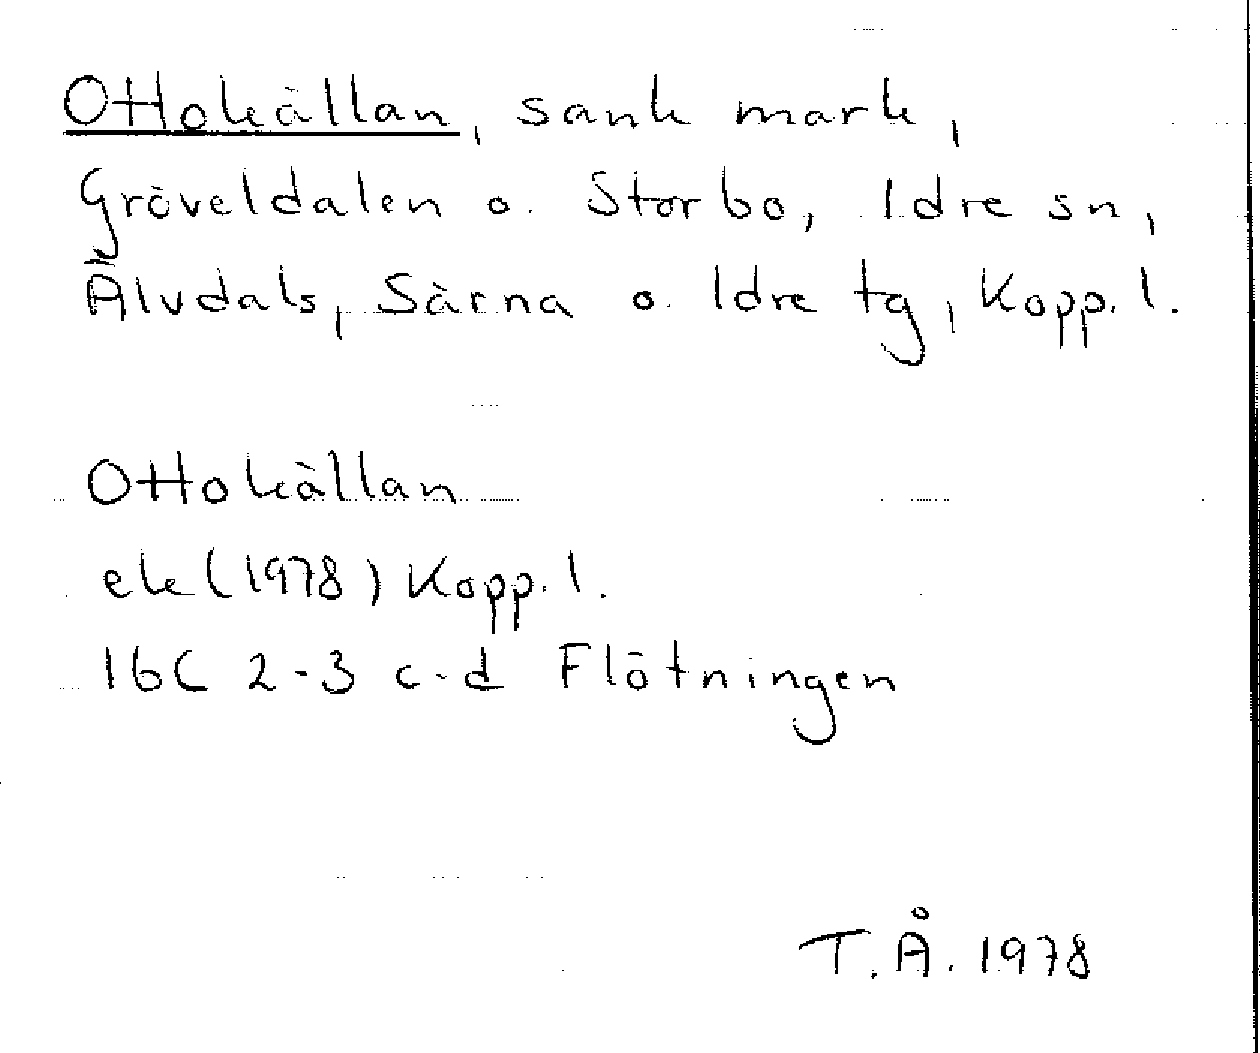 Ottokällan, sank mark,
Gröveldalen o. Storbo, Idre sn,
Älvdals, Särna o. Idre tg, Kopp. l.
Ottokällan
ek (1978) Kopp. l.
16C 2-3 c-d Flötningen
T. Å. 1978